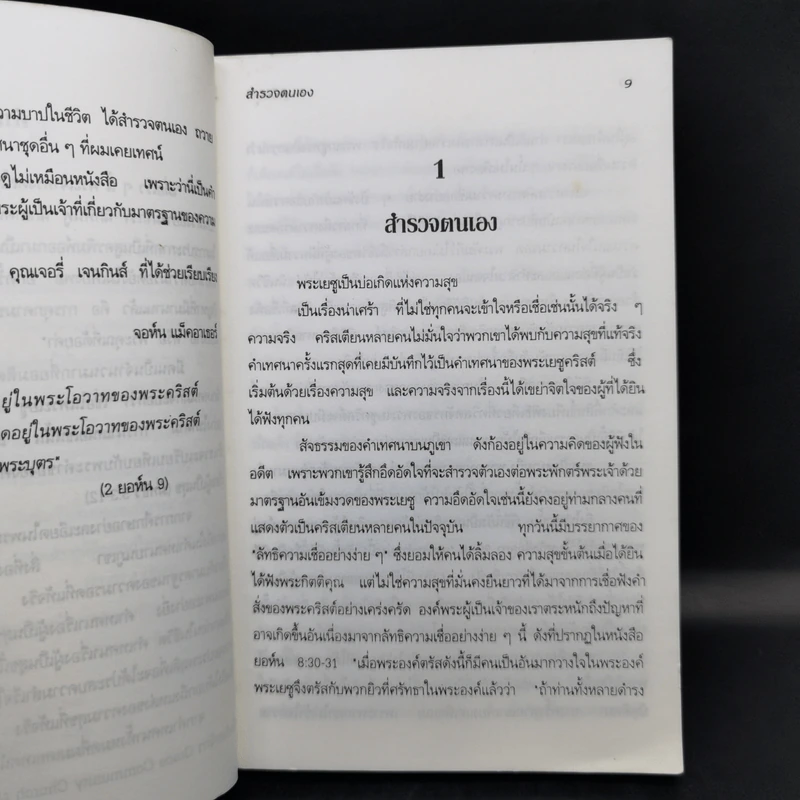 ความบาปในชีวิต ได้สำรวจตนเอง ถวาย
ศนาชุดอื่น ๆ ที่ผมเคยเทศน์
ดูไม่เหมือนหนังสือ เพราะว่านี่เป็นคำ
ระผู้เป็นเจ้าที่เกี่ยวกับมาตรฐานของความ
คุณเจอรี่ เจนกินส์ ที่ได้ช่วยเรียบเรียง
จอห์น แม็คอาเธอร์
อยู่ในพระโอวาทของพระคริสต์
ดอยู่ในพระโอวาทของพระคริสต์
พระบุตร"
(2 ยอห์น 9)
สำรวจตนเอง 9
1
สำรวจตนเอง
พระเยซูเป็นบ่อเกิดแห่งความสุข
เป็นเรื่องน่าเศร้า ที่ไม่ใช่ทุกคนจะเข้าใจหรือเชื่อเช่นนั้นได้จริง ๆ
ความจริง คริสเตียนหลายคนไม่มั่นใจว่าพวกเขาได้พบกับความสุขที่แท้จริง
คำเทศนาครั้งแรกสุดที่เคยมีบันทึกไว้เป็นคำเทศนาของพระเยซูคริสต์ ซึ่ง
เริ่มต้นด้วยเรื่องความสุข และความจริงจากเรื่องนี้ได้เขย่าจิตใจของผู้ที่ได้ยิน
ได้ฟังทุกคน
สัจธรรมของคำเทศนาบนภูเขา ดังก้องอยู่ในความคิดของผู้ฟังใน
อดีต เพราะพวกเขารู้สึกอึดอัดใจที่จะสำรวจตัวเองต่อพระพักตร์พระเจ้าด้วย
มาตรฐานอันเข้มงวดของพระเยซู ความอึดอัดใจเช่นนี้ยังคงอยู่ท่ามกลางคนที่
แสดงตัวเป็นคริสเตียนหลายคนในปัจจุบัน ทุกวันนี้มีบรรยากาศของ
"ลัทธิความเชื่ออย่างง่าย ๆ" ซึ่งยอมให้คนได้ลิ้มลอง ความสุขขั้นต้นเมื่อได้ยิน
ได้ฟังพระกิตติคุณ แต่ไม่ใช่ความสุขที่มั่นคงยืนยาวที่ได้มาจากการเชื่อฟังคำ
สั่งของพระคริสต์อย่างเคร่งครัด องค์พระผู้เป็นเจ้าของเราตระหนักถึงปัญหาที่
อาจเกิดขึ้นอันเนื่องมาจากลัทธิความเชื่ออย่างง่าย ๆ นี้ ดังที่ปรากฏในหนังสือ
ยอห์น 8:30-31 "เมื่อพระองค์ตรัสดังนี้ก็มีคนเป็นอันมากวางใจในพระองค์
พระเยซูจึงตรัสกับพวกยิวที่ศรัทธาในพระองค์แล้วว่า "ถ้าท่านทั้งหลายดำรง